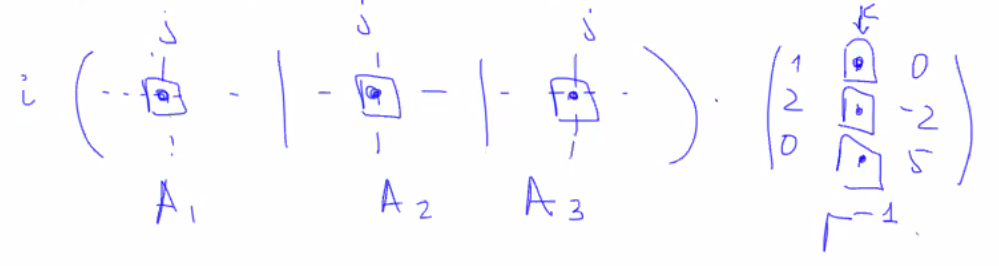 j j j K
i ( | | ) · ( 1 0
2 -2
0 5 )
A₁ A₂ A₃ Γ⁻¹